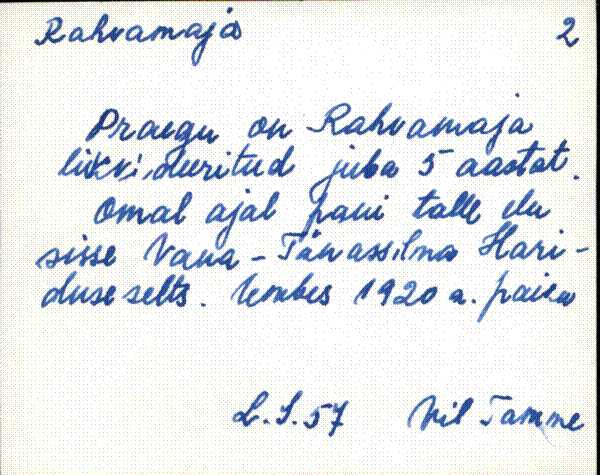 Rahvamaja 2
Praegu on Rahvamaja
likvideeritud juba 5 aastat.
Omal ajal pani talle elu
sisse Vana-Tänassilma Hari-
duse selts. Umbes 1920 a. paiku
L.S.57 Vil Tamme